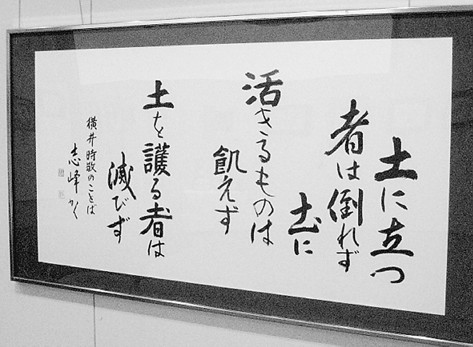 土に立つ
者は倒れず
土に
活きるものは
飢えず
土を護る者は
滅びず
横井時敬のことば
志峰かく